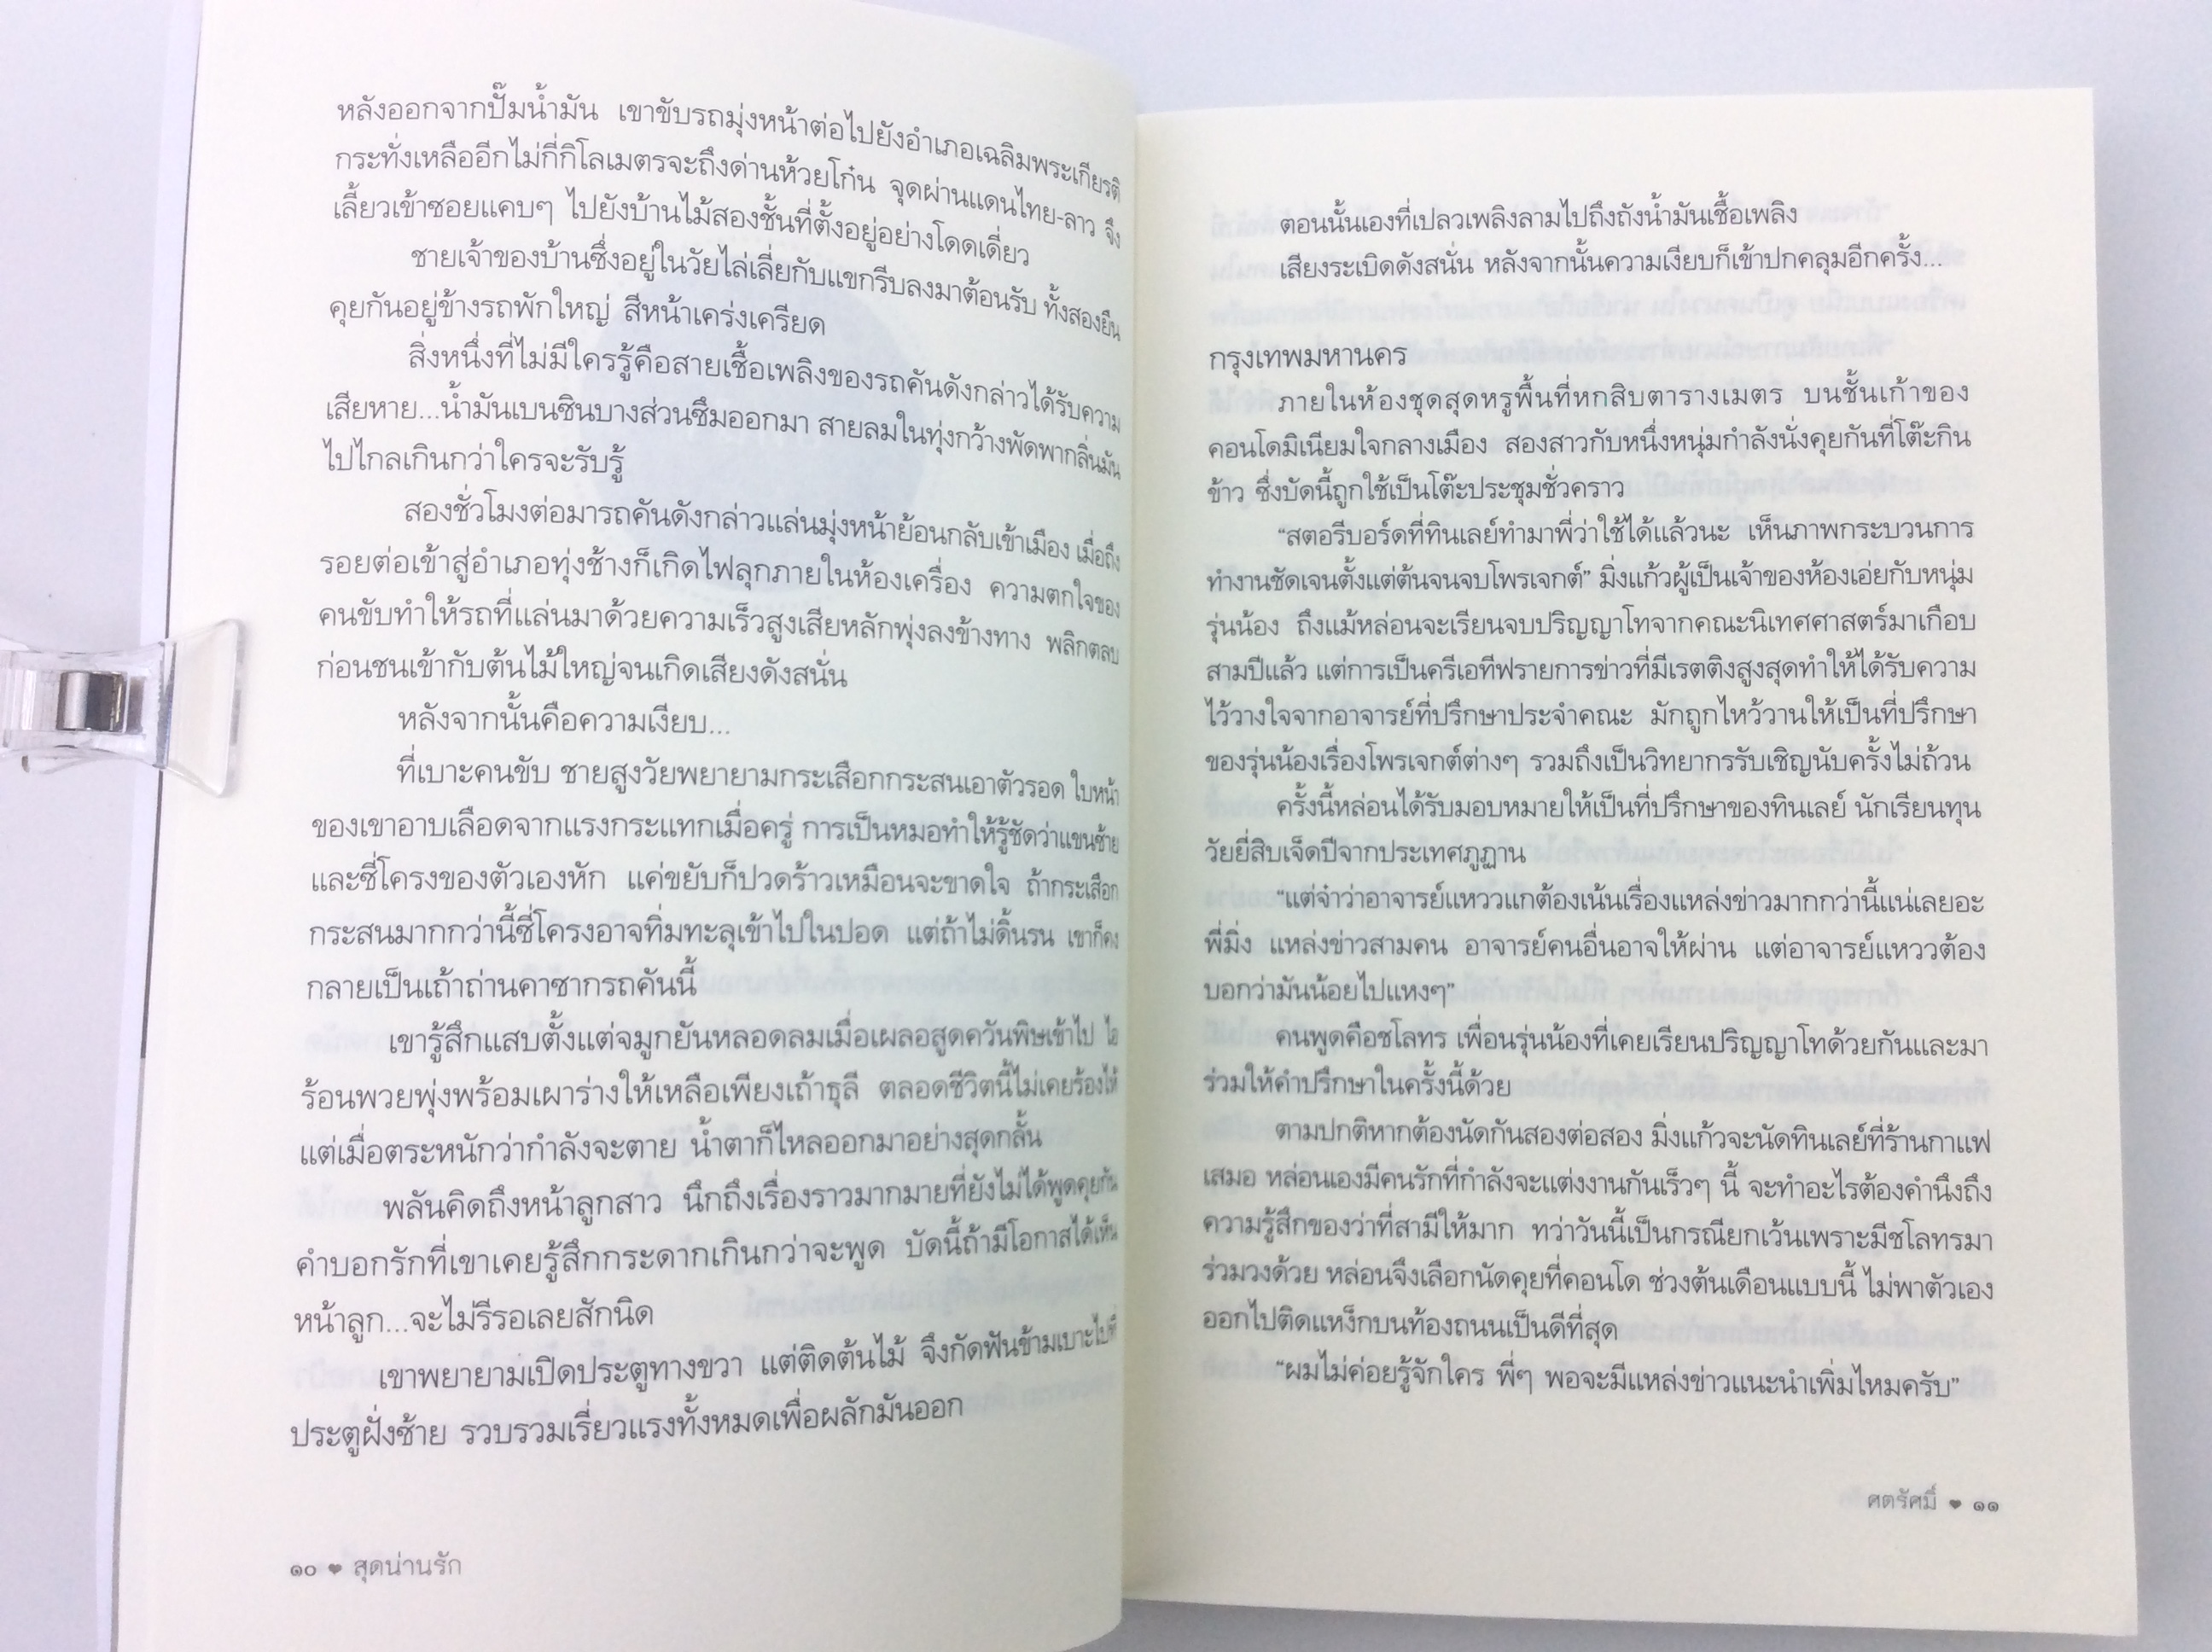 หลังออกจากปั๊มน้ำมัน เขาขับรถมุ่งหน้าต่อไปยังอำเภอเฉลิมพระเกียรติ
กระทั่งเหลืออีกไม่กี่กิโลเมตรจะถึงด่านห้วยโก๋น จุดผ่านแดนไทย-ลาว จึง
เลี้ยวเข้าซอยแคบๆ ไปยังบ้านไม้สองชั้นที่ตั้งอยู่อย่างโดดเดี่ยว
ชายเจ้าของบ้านซึ่งอยู่ในวัยไล่เลี่ยกับแขกรีบลงมาต้อนรับ ทั้งสองยืน
คุยกันอยู่ข้างรถพักใหญ่ สีหน้าเคร่งเครียด
สิ่งหนึ่งที่ไม่มีใครรู้คือสายเชื้อเพลิงของรถคันดังกล่าวได้รับความ
เสียหาย...น้ำมันเบนซินบางส่วนซึมออกมา สายลมในทุ่งกว้างพัดพากลิ่นมัน
ไปไกลเกินกว่าใครจะรับรู้
สองชั่วโมงต่อมารถคันดังกล่าวแล่นมุ่งหน้าย้อนกลับเข้าเมือง เมื่อถึง
รอยต่อเข้าสู่อำเภอทุ่งช้างก็เกิดไฟลุกภายในห้องเครื่อง ความตกใจของ
คนขับทำให้รถที่แล่นมาด้วยความเร็วสูงเสียหลักพุ่งลงข้างทาง พลิกตลบ
ก่อนชนเข้ากับต้นไม้ใหญ่จนเกิดเสียงดังสนั่น
หลังจากนั้นคือความเงียบ...
ที่เบาะคนขับ ชายสูงวัยพยายามกระเสือกกระสนเอาตัวรอด ใบหน้า
ของเขาอาบเลือดจากแรงกระแทกเมื่อครู่ การเป็นหมอทำให้รู้ชัดว่าแขนซ้าย
และซี่โครงของตัวเองหัก แค่ขยับก็ปวดร้าวเหมือนจะขาดใจ ถ้ากระเสือก
กระสนมากกว่านี้ซี่โครงอาจทิ่มทะลุเข้าไปในปอด แต่ถ้าไม่ดิ้นรน เขาก็คง
กลายเป็นเถ้าถ่านคาซากรถคันนี้
เขารู้สึกแสบตั้งแต่จมูกยันหลอดลมเมื่อเผลอสูดควันพิษเข้าไป ไอ
ร้อนพวยพุ่งพร้อมเผาร่างให้เหลือเพียงเถ้าธุลี ตลอดชีวิตนี้ไม่เคยร้องไห้
แต่เมื่อตระหนักว่ากำลังจะตาย น้ำตาก็ไหลออกมาอย่างสุดกลั้น
พลันคิดถึงหน้าลูกสาว นึกถึงเรื่องราวมากมายที่ยังไม่ได้พูดคุยกัน
คำบอกรักที่เขาเคยรู้สึกกระดากเกินกว่าจะพูด บัดนี้ถ้ามีโอกาสได้เห็น
หน้าลูก...จะไม่รีรอเลยสักนิด
เขาพยายามเปิดประตูทางขวา แต่ติดต้นไม้ จึงกัดฟันข้ามเบาะไปที่
ประตูฝั่งซ้าย รวบรวมเรี่ยวแรงทั้งหมดเพื่อผลักมันออก
๑๐ ❤ สุดน่านรัก
ตอนนั้นเองที่เปลวเพลิงลามไปถึงถังน้ำมันเชื้อเพลิง
เสียงระเบิดดังสนั่น หลังจากนั้นความเงียบก็เข้าปกคลุมอีกครั้ง...
กรุงเทพมหานคร
ภายในห้องชุดสุดหรูพื้นที่หกสิบตารางเมตร บนชั้นเก้าของ
คอนโดมิเนียมใจกลางเมือง สองสาวกับหนึ่งหนุ่มกำลังนั่งคุยกันที่โต๊ะกิน
ข้าว ซึ่งบัดนี้ถูกใช้เป็นโต๊ะประชุมชั่วคราว
“สตอรีบอร์ดที่ทินเลย์ทำมาพี่ว่าใช้ได้แล้วนะ เห็นภาพกระบวนการ
ทำงานชัดเจนตั้งแต่ต้นจนจบโพรเจกต์” มิ่งแก้วผู้เป็นเจ้าของห้องเอ่ยกับหนุ่ม
รุ่นน้อง ถึงแม้หล่อนจะเรียนจบปริญญาโทจากคณะนิเทศศาสตร์มาเกือบ
สามปีแล้ว แต่การเป็นครีเอทีฟรายการข่าวที่มีเรตติงสูงสุดทำให้ได้รับความ
ไว้วางใจจากอาจารย์ที่ปรึกษาประจำคณะ มักถูกไหว้วานให้เป็นที่ปรึกษา
ของรุ่นน้องเรื่องโพรเจกต์ต่างๆ รวมถึงเป็นวิทยากรรับเชิญนับครั้งไม่ถ้วน
ครั้งนี้หล่อนได้รับมอบหมายให้เป็นที่ปรึกษาของทินเลย์ นักเรียนทุน
วัยยี่สิบเจ็ดปีจากประเทศภูฏาน
“แต่จ๋าว่าอาจารย์แหววแกต้องเน้นเรื่องแหล่งข่าวมากกว่านี้แน่เลยอะ
พี่มิ่ง แหล่งข่าวสามคน อาจารย์คนอื่นอาจให้ผ่าน แต่อาจารย์แหววต้อง
บอกว่ามันน้อยไปแหงๆ”
คนพูดคือชโลทร เพื่อนรุ่นน้องที่เคยเรียนปริญญาโทด้วยกันและมา
ร่วมให้คำปรึกษาในครั้งนี้ด้วย
ตามปกติหากต้องนัดกันสองต่อสอง มิ่งแก้วจะนัดทินเลย์ที่ร้านกาแฟ
เสมอ หล่อนเองมีคนรักที่กำลังจะแต่งงานกันเร็วๆ นี้ จะทำอะไรต้องคำนึงถึง
ความรู้สึกของว่าที่สามีให้มาก ทว่าวันนี้เป็นกรณียกเว้นเพราะมีชโลทรมา
ร่วมวงด้วย หล่อนจึงเลือกนัดคุยที่คอนโด ช่วงต้นเดือนแบบนี้ ไม่พาตัวเอง
ออกไปติดแหง็กบนท้องถนนเป็นดีที่สุด
“ผมไม่ค่อยรู้จักใคร พี่ๆ พอจะมีแหล่งข่าวแนะนำเพิ่มไหมครับ”
ศตรัศมิ์ ❤ ๑๑